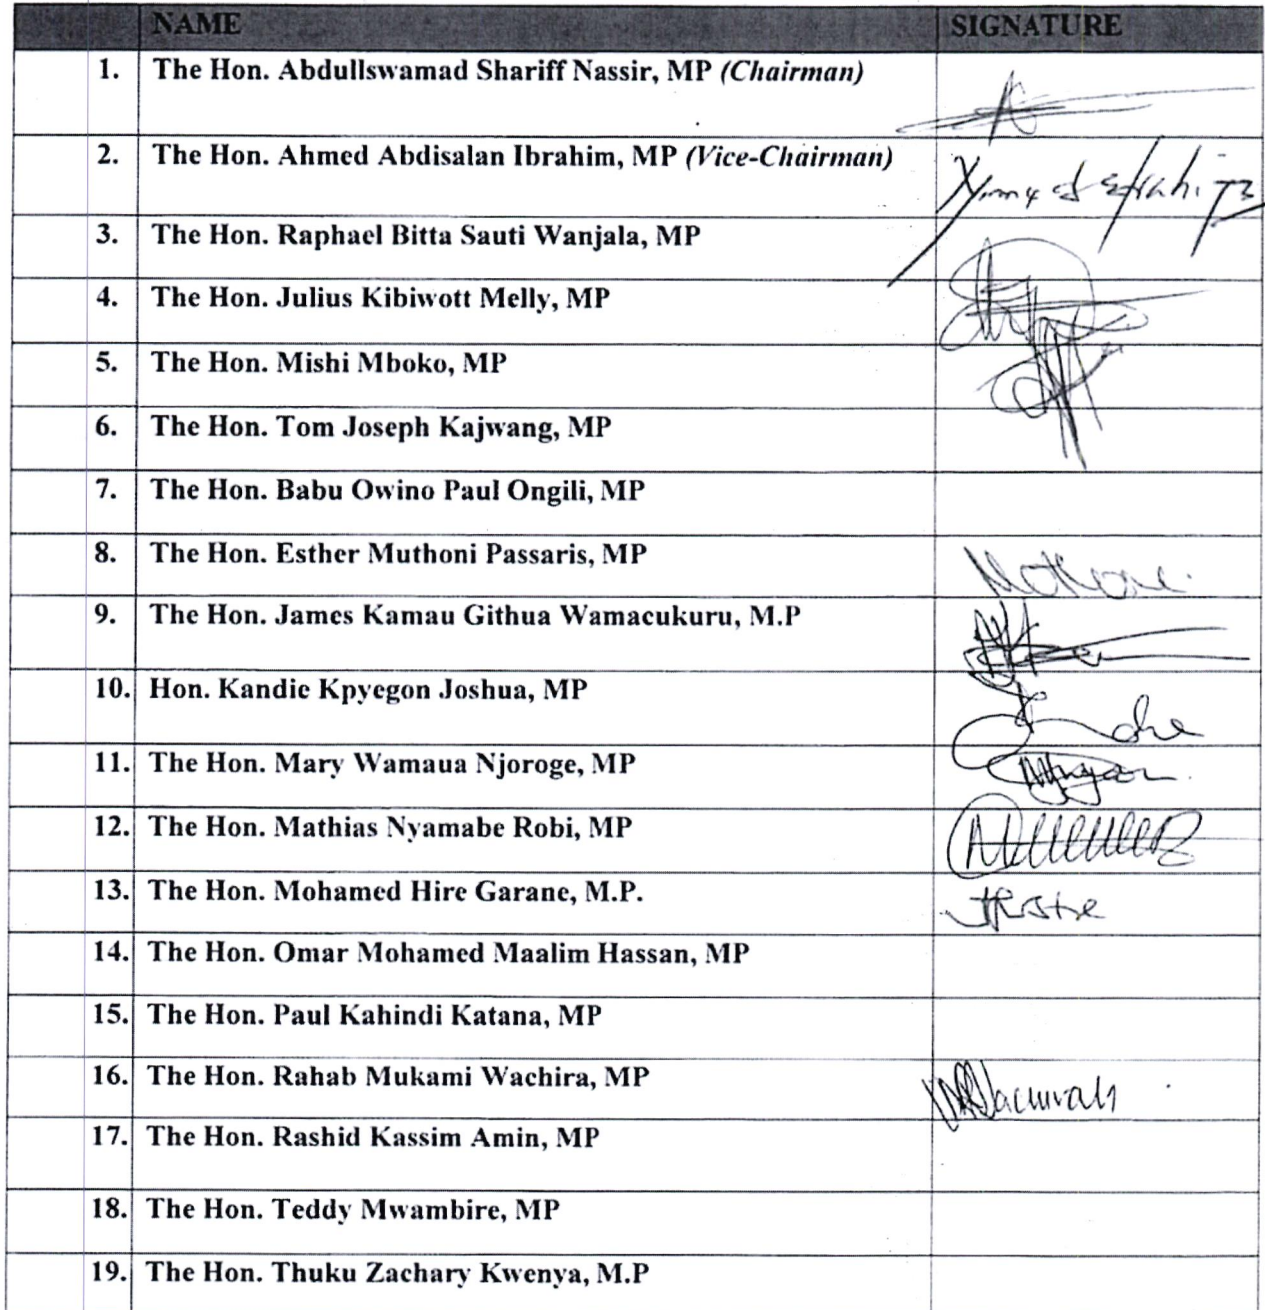 NAME SIGNATURE
1. The Hon. Abdullswamad Shariff Nassir, MP (Chairman)
2. The Hon. Ahmed Abdisalan Ibrahim, MP (Vice-Chairman)
3. The Hon. Raphael Bitta Sauti Wanjala, MP
4. The Hon. Julius Kibiwott Melly, MP
5. The Hon. Mishi Mboko, MP
6. The Hon. Tom Joseph Kajwang, MP
7. The Hon. Babu Owino Paul Ongili, MP
8. The Hon. Esther Muthoni Passaris, MP
9. The Hon. James Kamau Githua Wamacukuru, M.P
10. Hon. Kandie Kpyegon Joshua, MP
11. The Hon. Mary Wamaua Njoroge, MP
12. The Hon. Mathias Nyamabe Robi, MP
13. The Hon. Mohamed Hire Garane, M.P.
14. The Hon. Omar Mohamed Maalim Hassan, MP
15. The Hon. Paul Kahindi Katana, MP
16. The Hon. Rahab Mukami Wachira, MP
17. The Hon. Rashid Kassim Amin, MP
18. The Hon. Teddy Mwambire, MP
19. The Hon. Thuku Zachary Kwenya, M.P